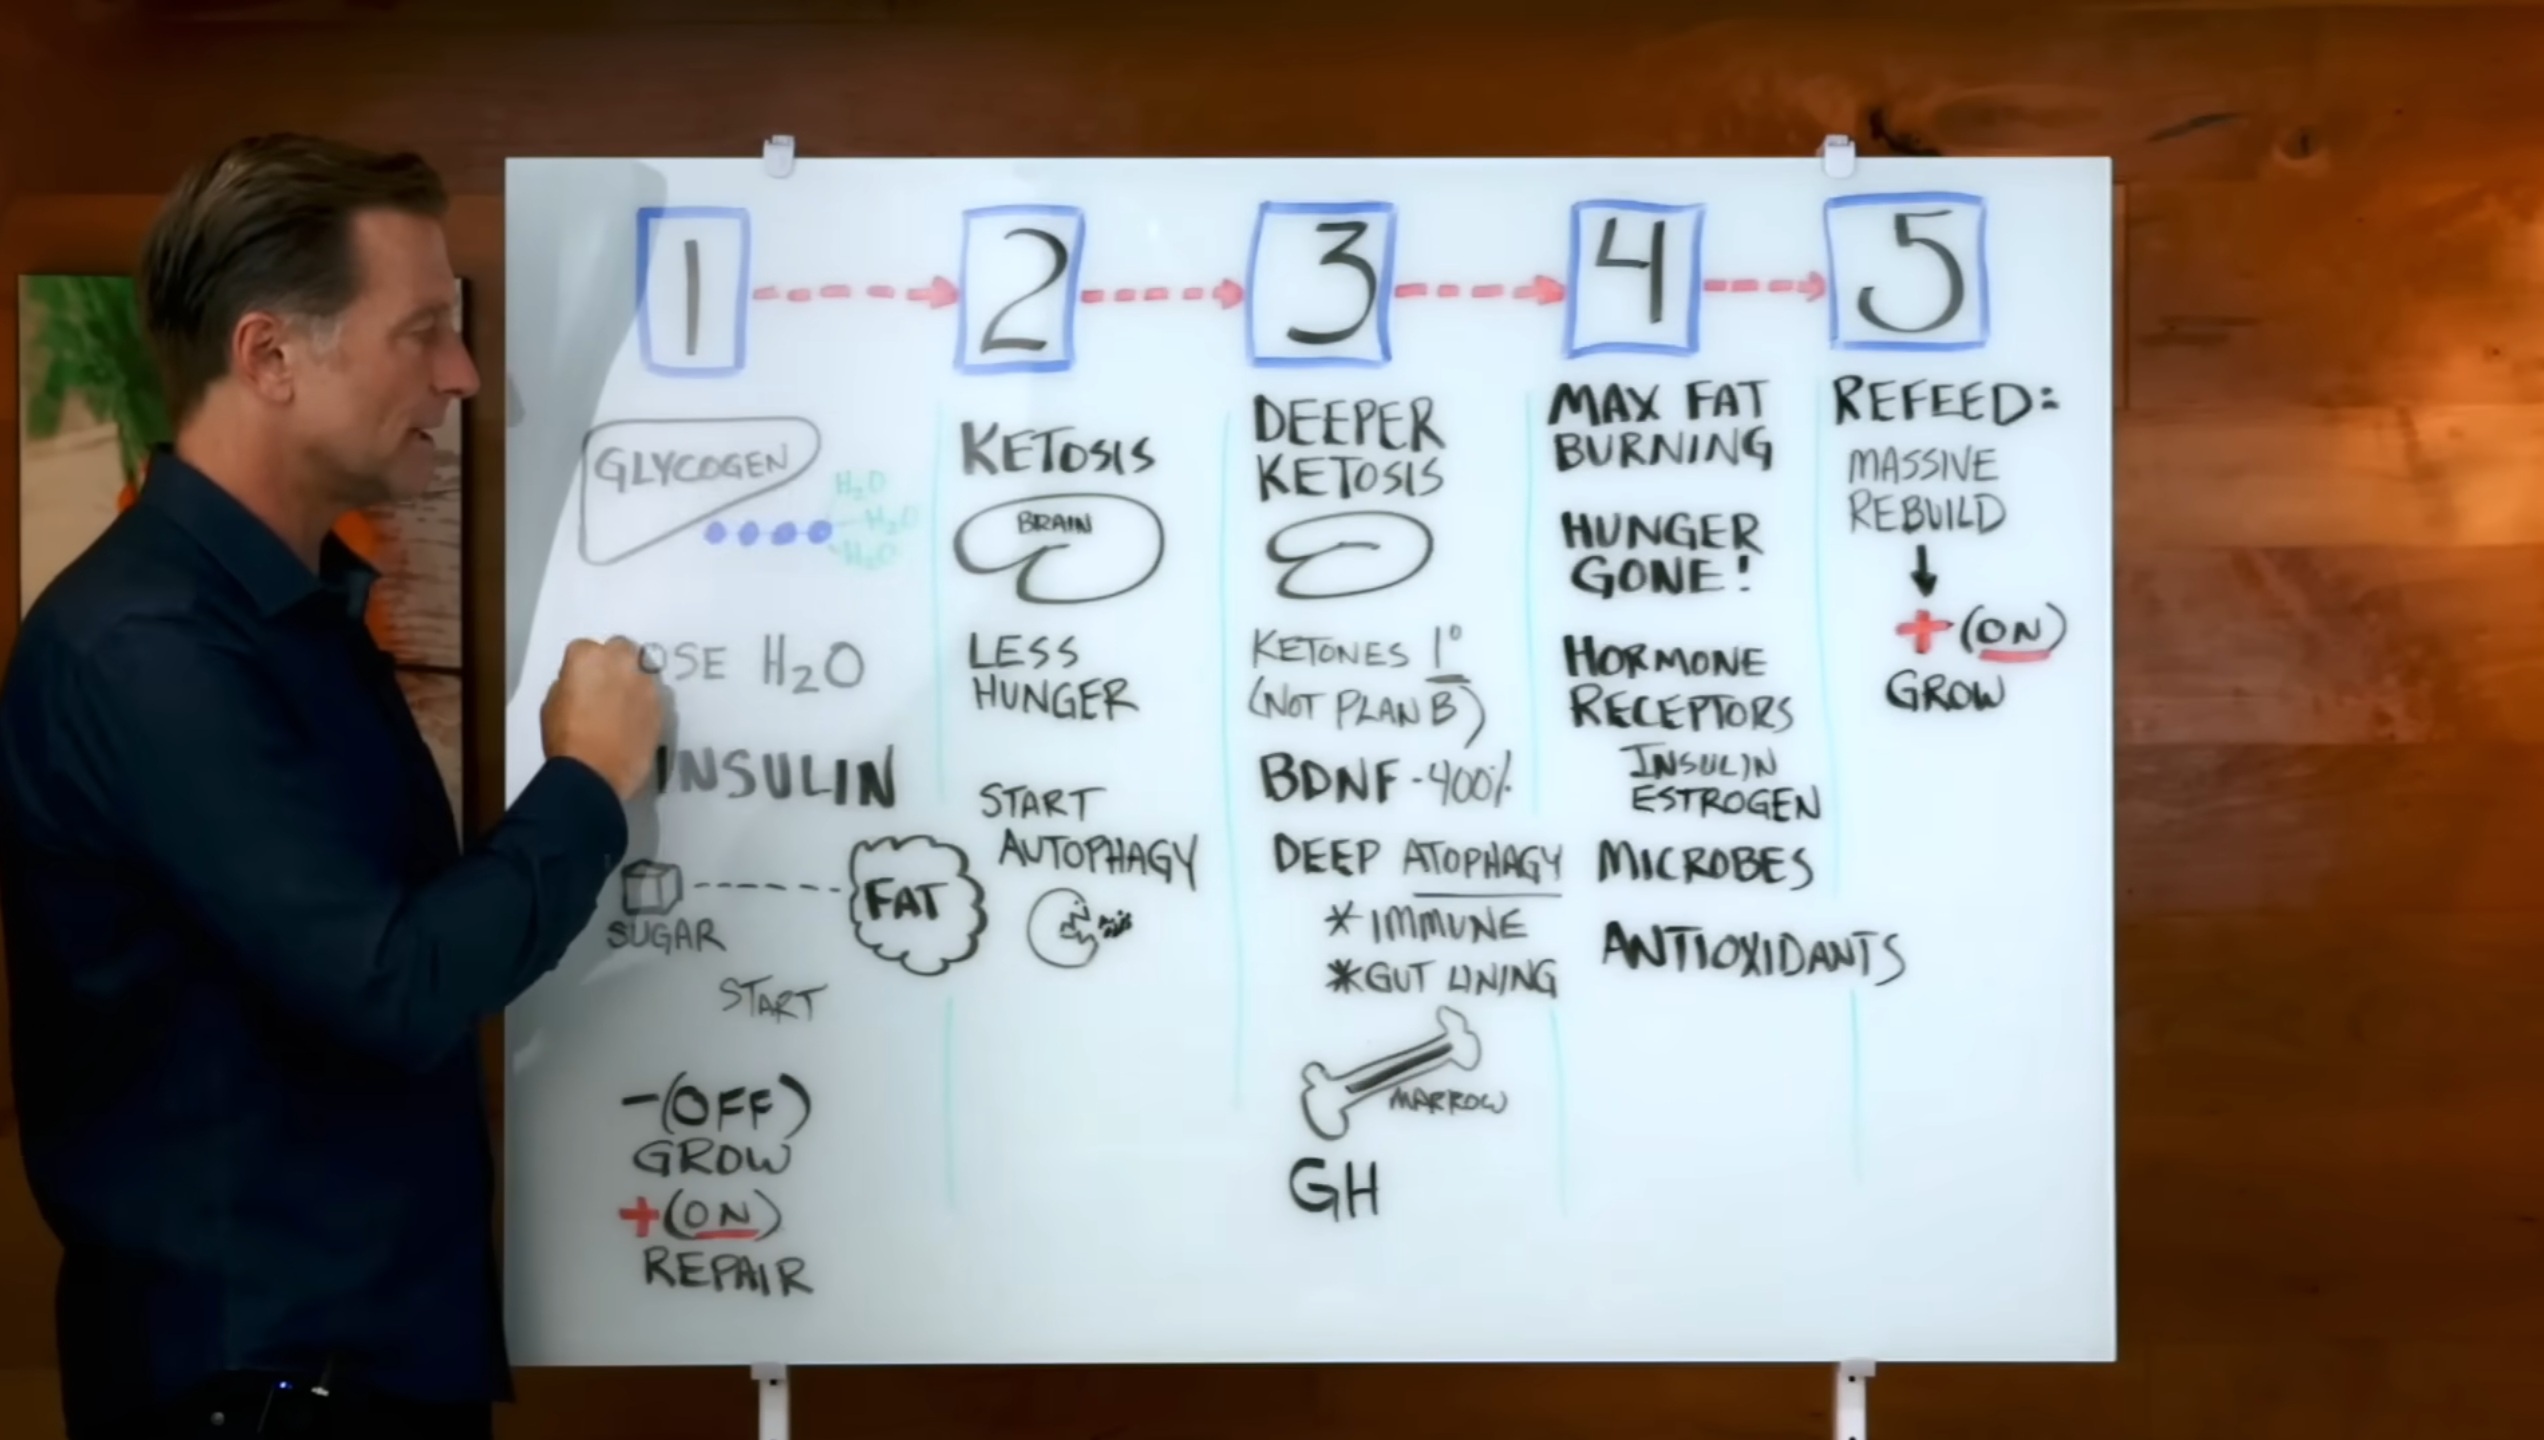 1
GLYCOGEN
H₂O
H₂O
H₂O
OSE H₂O
INSULIN
SUGAR
FAT
START
-(OFF)
GROW
+(ON)
REPAIR
2
KETOSIS
BRAIN
LESS
HUNGER
START
AUTOPHAGY
3
DEEPER
KETOSIS
KETONES 1°
(NOT PLAN B)
BDNF - 400%
DEEP ATOPHAGY
* IMMUNE
* GUT LINING
MARROW
GH
4
MAX FAT
BURNING
HUNGER
GONE!
HORMONE
RECEPTORS
INSULIN
ESTROGEN
MICROBES
ANTIOXIDANTS
5
REFEED:
MASSIVE
REBUILD
+(ON)
GROW